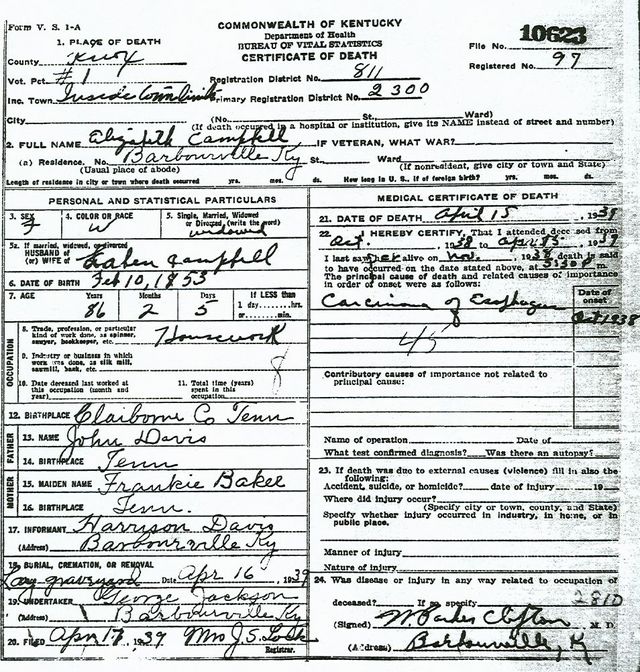 Form V. S. 1-A
COMMONWEALTH OF KENTUCKY
Department of Health
BUREAU OF VITAL STATISTICS
CERTIFICATE OF DEATH
File No. 10623
Registered No. 97
1. PLACE OF DEATH
County Knox
Vot. Pct. #1
Inc. Town Inside Town limits
Registration District No. 811
Primary Registration District No. 2300
City (No. St. Ward)
(If death occurred in a hospital or institution, give its NAME instead of street and number)
2. FULL NAME Elizabeth Campbell IF VETERAN, WHAT WAR?
(a) Residence. No. Barbourville Ky St. Ward
(Usual place of abode) (If nonresident, give city or town and State)
Length of residence in city or town where death occurred yrs. mos. ds. How long in U. S., if of foreign birth? yrs. mos. ds.
PERSONAL AND STATISTICAL PARTICULARS
3. SEX F
4. COLOR OR RACE W
5. Single, Married, Widowed or Divorced (write the word) widowed
5a. If married, widowed, or divorced
HUSBAND of
(or) WIFE of Campbell
6. DATE OF BIRTH Feb 10, 1853
7. AGE Years 86 Months 2 Days 5 If LESS than 1 day......hrs. or......min.
OCCUPATION
8. Trade, profession, or particular kind of work done, as spinner, sawyer, bookkeeper, etc. Housework
9. Industry or business in which work was done, as silk mill, sawmill, bank, etc.
8
10. Date deceased last worked at this occupation (month and year)
11. Total time (years) spent in this occupation
12. BIRTHPLACE Claiborne Co Tenn
FATHER
13. NAME John Davis
14. BIRTHPLACE Tenn
MOTHER
15. MAIDEN NAME Frankie Baker
16. BIRTHPLACE Tenn.
17. INFORMANT Harrison Davis
(Address) Barbourville Ky
18. BURIAL, CREMATION, OR REMOVAL
graveyard Date Apr 16, 1939
19. UNDERTAKER George Jackson
(Address) Barbourville Ky
20. FILED Apr 17, 1939 Mrs J. S.
Registrar.
MEDICAL CERTIFICATE OF DEATH
21. DATE OF DEATH April 15, 1939
22. I HEREBY CERTIFY, That I attended deceased from
Oct. 1938 to Apr 15, 1939
I last saw her alive on Nov. 1938 death is said
to have occurred on the date stated above, at m.
The principal cause of death and related causes of importance
in order of onset were as follows:
Date of onset
Carcinoma of Esophagus Oct 1938
45
Contributory causes of importance not related to
principal cause:
Name of operation Date of
What test confirmed diagnosis? Was there an autopsy?
23. If death was due to external causes (violence) fill in also the
following:
Accident, suicide, or homicide? date of injury 19
Where did injury occur?
(Specify city or town, county, and State)
Specify whether injury occurred in industry, in home, or in
public place.
Manner of injury
Nature of injury
24. Was disease or injury in any way related to occupation of
deceased? If so specify 2810
(Signed) W. Parkes Clifton M. D.
(Address) Barbourville, K